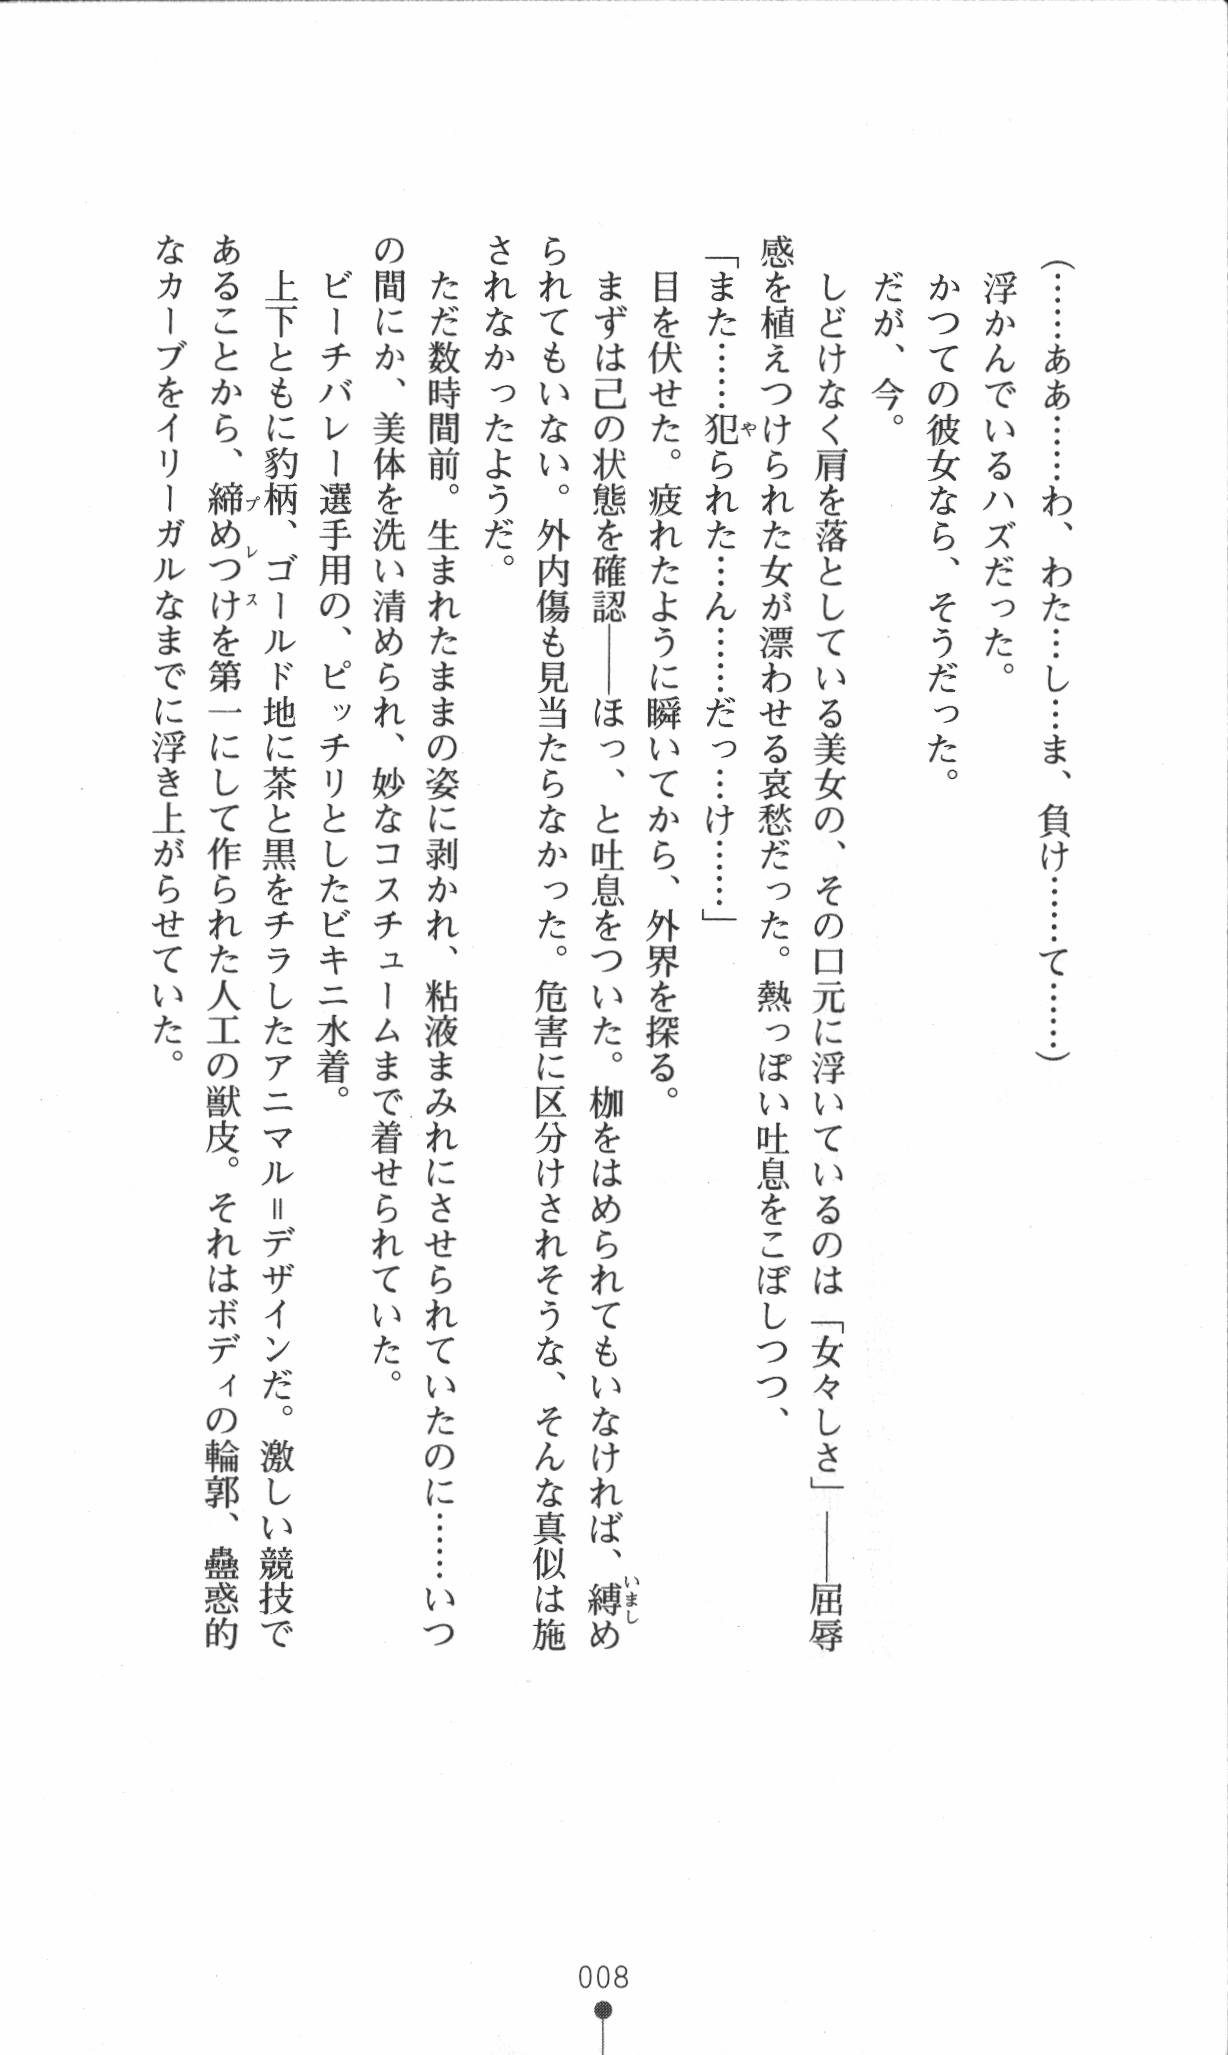 (……ああ……わ、わた…し…ま、負け……て……)
浮かんでいるハズだった。
かつての彼女なら、そうだった。
だが、今。
しどけなく肩を落としている美女の、その口元に浮いているのは「女々しさ」――屈辱
感を植えつけられた女が漂わせる哀愁だった。熱っぽい吐息をこぼしつつ、
「また……犯られた…ん……だっ…け……」
や
目を伏せた。疲れたように瞬いてから、外界を探る。
まずは己の状態を確認――ほっ、と吐息をついた。枷をはめられてもいなければ、縛め
いまし
られてもいない。外内傷も見当たらなかった。危害に区分けされそうな、そんな真似は施
されなかったようだ。
ただ数時間前。生まれたままの姿に剥かれ、粘液まみれにさせられていたのに……いつ
の間にか、美体を洗い清められ、妙なコスチュームまで着せられていた。
ビーチバレー選手用の、ピッチリとしたビキニ水着。
上下ともに豹柄、ゴールド地に茶と黒をチラしたアニマル＝デザインだ。激しい競技で
あることから、締めつけを第一にして作られた人工の獣皮。それはボディの輪郭、蠱惑的
プレス
なカーブをイリーガルなまでに浮き上がらせていた。
008